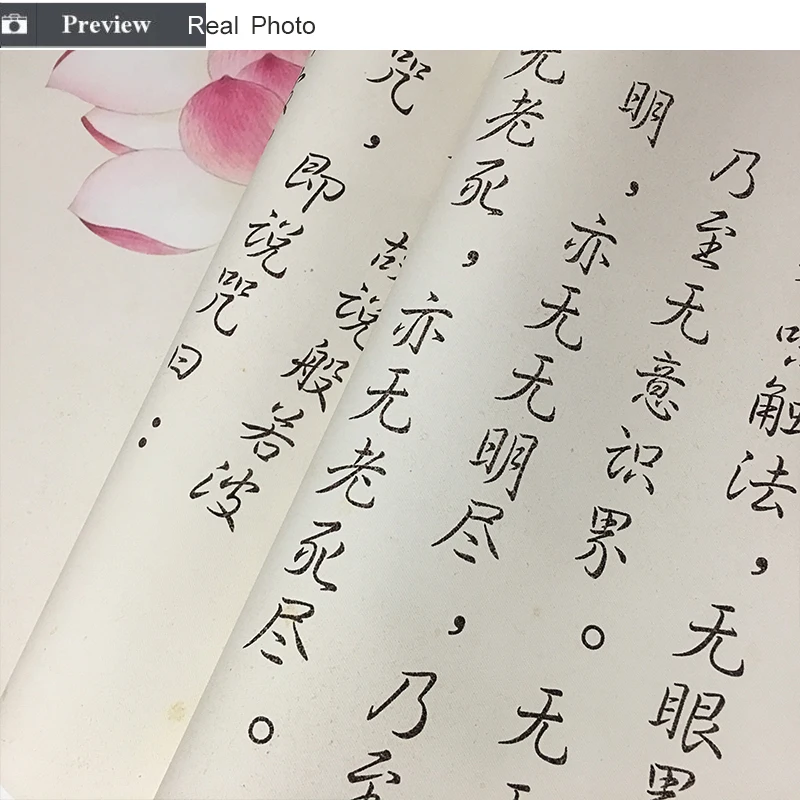 Preview
Real Photo
味触法，无眼界
乃至无意识界。无无
明，亦无无明尽，乃至
无老死，亦无老死尽。
故说般若波
咒，即说咒曰：